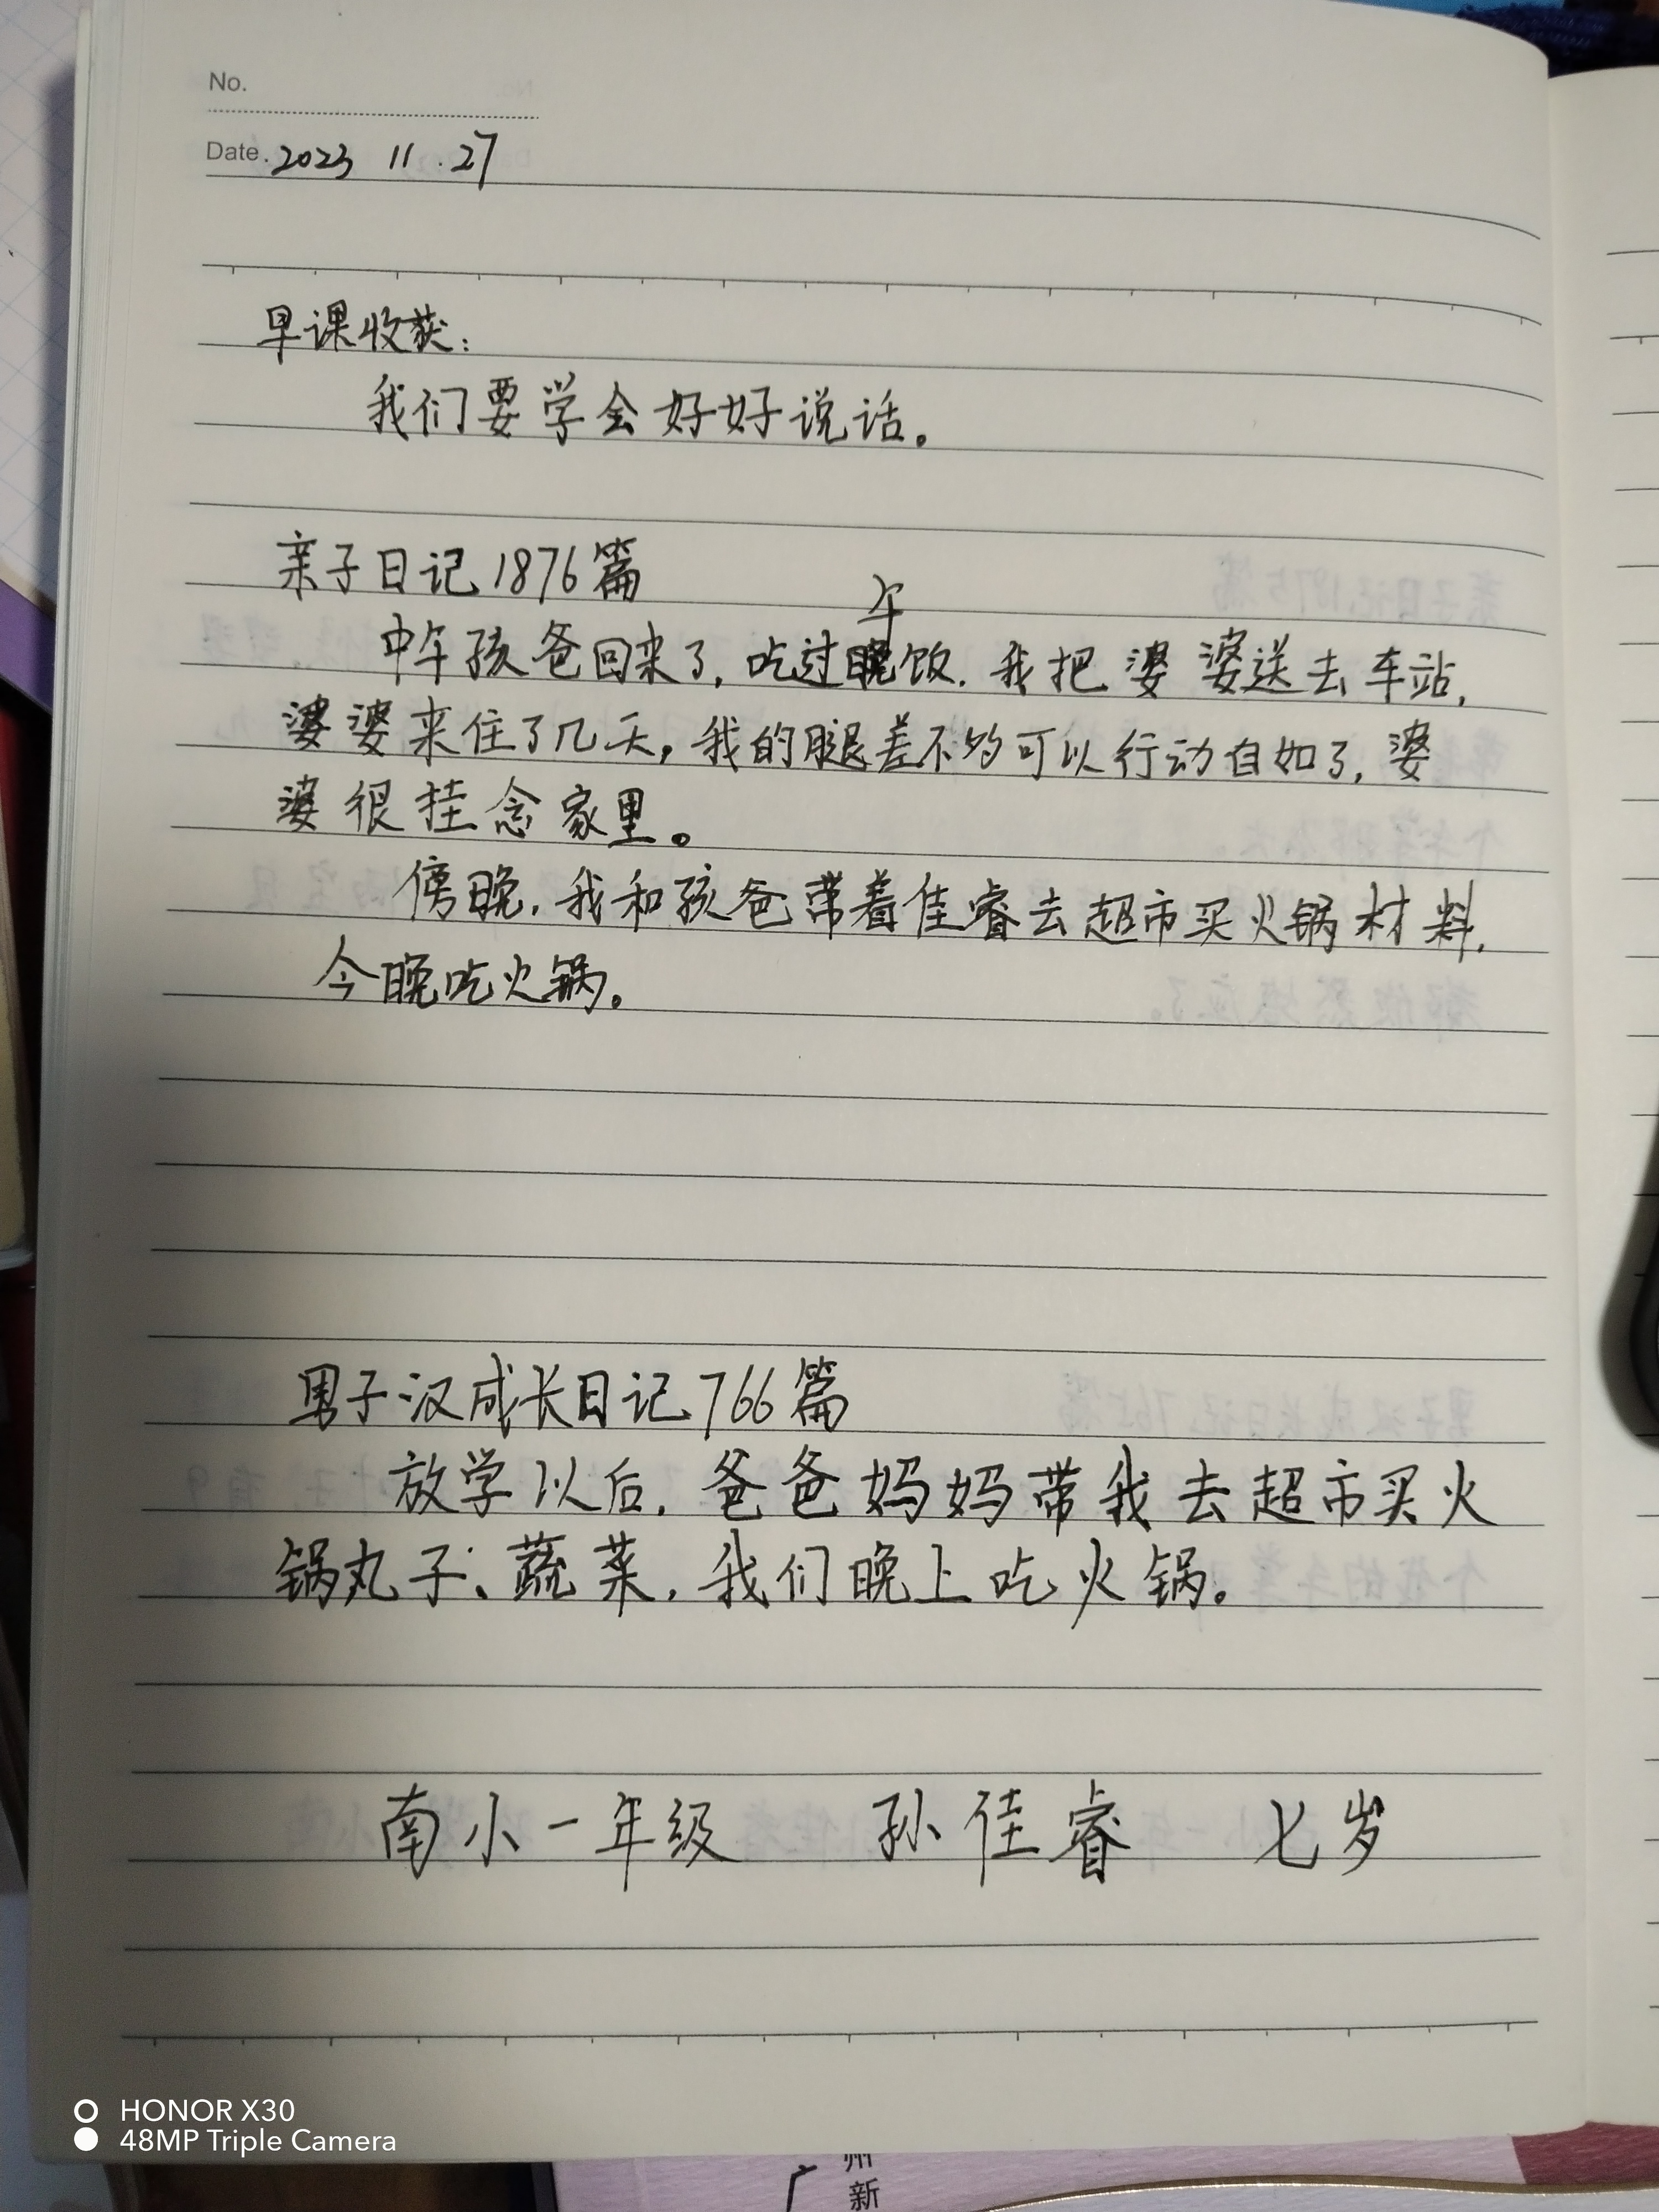 No.
Date. 2023 11.27
早课收获：
我们要学会好好说话。
亲子日记1876篇
中午孩爸回来了，吃过午饭，我把婆婆送去车站，
婆婆来住了几天，我的腿差不多可以行动自如了，婆
婆很挂念家里。
傍晚，我和孩爸带着佳睿去超市买火锅材料，
今晚吃火锅。
男子汉成长日记766篇
放学以后，爸爸妈妈带我去超市买火
锅丸子、蔬菜，我们晚上吃火锅。
南小一年级 孙佳睿 七岁
HONOR X30
48MP Triple Camera
广
州
新